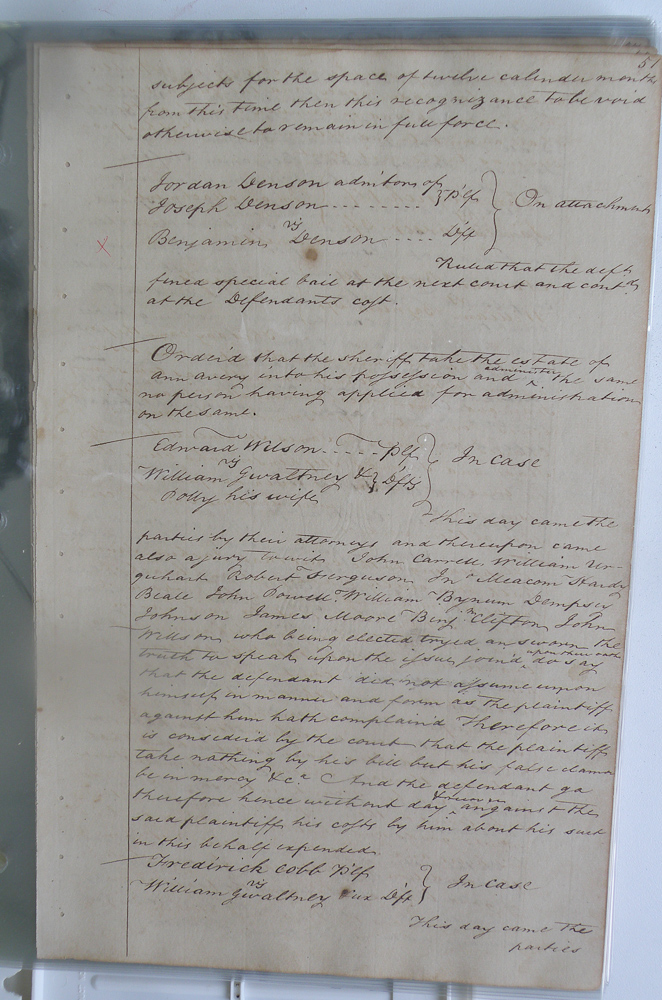 51
subjects for the space of twelve calender month
from this time then this recognizance to be void
otherwise to remain in full force.
Jordan Denson admitors of
Joseph Denson - - - - - - - - - } Plf
vs
Benjamin Denson - - - - Dft
On attachment
Ruled that the deft
fined special bail at the next court and contd
at the Defendants cost.
Orderd that the sheriff take the estate of
ann avery into his possession and administer the same
no person having applied for administration
on the same.
Edward Wilson - - - - - Plf
vs
William Gwaltney & } Dfts
Polly his wife
In Case
This day came the
parties by their attorneys and thereupon came
also a jury to wit John Carrell William Ur-
quhart Robert Ferguson Jno Meacom Hardy
Beale John Powell William Bynum Dempsey
Johnson James Moore Benj.mn Clifton John
Willson who being elected tryed an sworn the
truth to speak upon the issue joind upon their oaths do say
that the defendant did not assume upon
himself in manner and form as the plaintiff
against him hath complaind Therefore it
is considerd by the court that the plaintiff
take nothing by his bill but his false clamo
be in mercy &c.a And the defendant go
therefore hence without day & recover angainst the
said plaintiff his costs by him about his suit
in this behalf expended
Fredirick Cobb Plf
vs
William Gwaltney & ux Dft
In Case
This day came the
parties